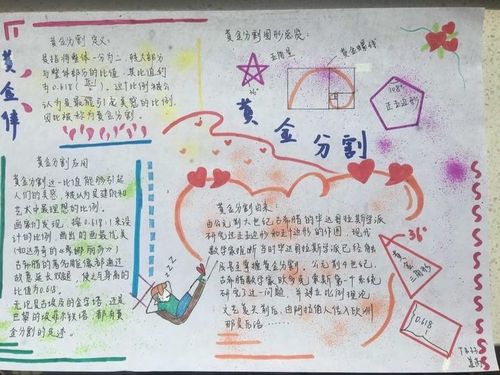 黄金分割定义:
黄金指将整体一分为二,较大部分
与整体部分的比值,其比值约
为0.618
认为是最能引起美感的比例,
因此被称为黄金分割。
黄金分割图形总览:
五角星
黄金螺线
36°
108°
正五边形
黄金分割
黄金分割应用
黄金分割这一比值能够引起
人们的美感,被认为是建筑和
艺术中最理想的比例。
画家们发现,按0.618:1来设
计的比例,画出的画最优美
古希腊的著名雕像都通过
故意延长双腿,使之与身高的
比值为0.618.
无论是古埃及的金字塔,还是
巴黎的埃菲尔铁塔,都有黄
金分割的足迹。
zzz
黄金分割由来:
由公元前六世纪,古希腊的毕达哥拉斯学派
研究过正五边形和正十边形的作图,现代
数学家推断当时毕达哥拉斯学派已经触
及甚至掌握黄金分割。公元前4世纪,
古希腊数学家欧多克索斯第一个系统
研究了这一问题,并建立起比例理论
文艺复兴前后,由阿拉伯人传入欧洲
36°
黄金
三角形
0.618
1